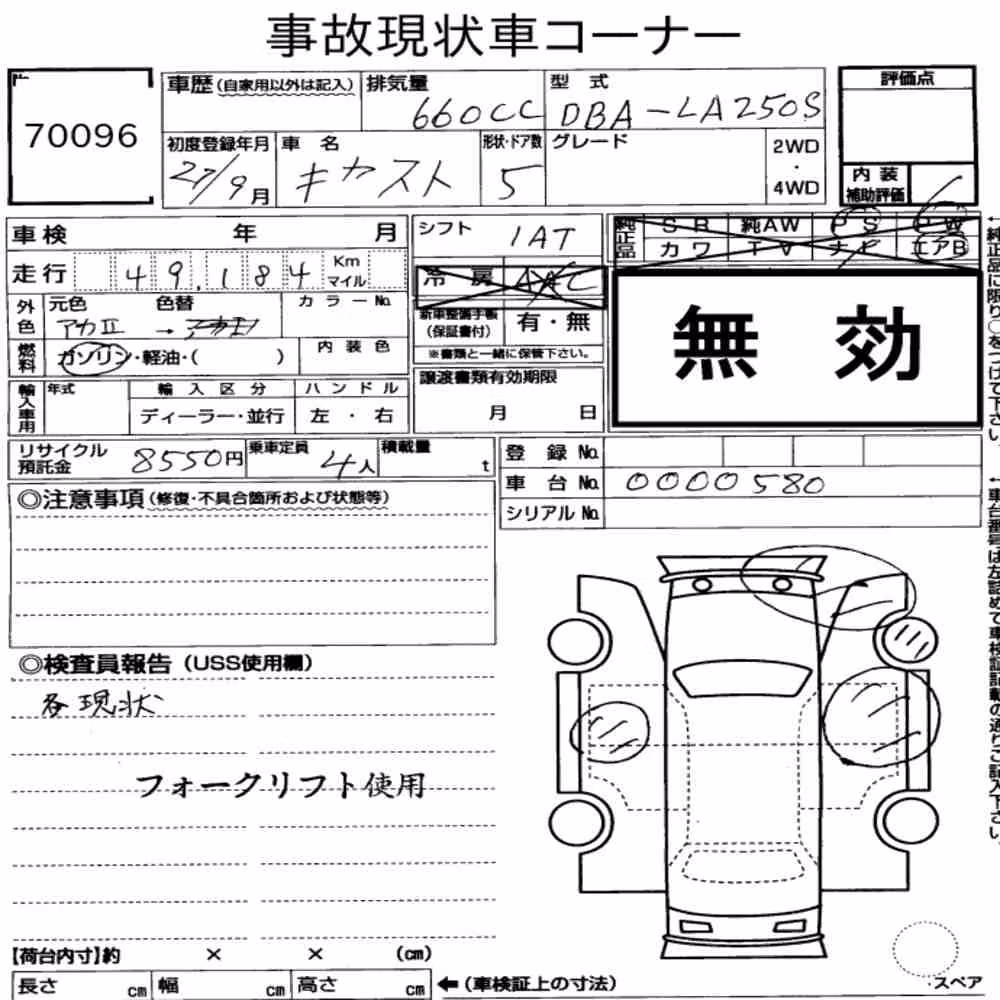 事故現状車コーナー
70096
車歴(自家用以外は記入)
排気量 660CC
型式 DBA-LA250S
評価点
初度登録年月 27/9月
車名 キャスト
形状・ドア数 5
グレード
2WD
・
4WD
内装
補助評価
車検 年 月
シフト 1AT
純正品 SR 純AW PS PW
カワ TV ナビ エアB
走行 49,184 Km
マイル
冷房 AAC
外色 元色 アカⅡ → 色替
カラーNo.
新車整備手帳
(保証書付) 有・無
※書類と一緒に保管下さい。
無効
燃料 ガソリン・軽油・( )
内装色
輸入車用 年式 輸入区分 ハンドル
ディーラー・並行 左・右
譲渡書類有効期限
月 日
リサイクル
預託金 8550円
乗車定員 4人
積載量 t
登録No.
車台No. 0000580
シリアルNo.
◎注意事項(修復・不具合箇所および状態等)
◎検査員報告(USS使用欄)
各現状
フォークリフト使用
【荷台内寸】約 × × (cm)
長さ cm 幅 cm 高さ cm
←(車検証上の寸法)
スペア
←純正品に限り○をつけて下さい。
←車台番号は左詰めで車検証記載の通りご記入下さい。